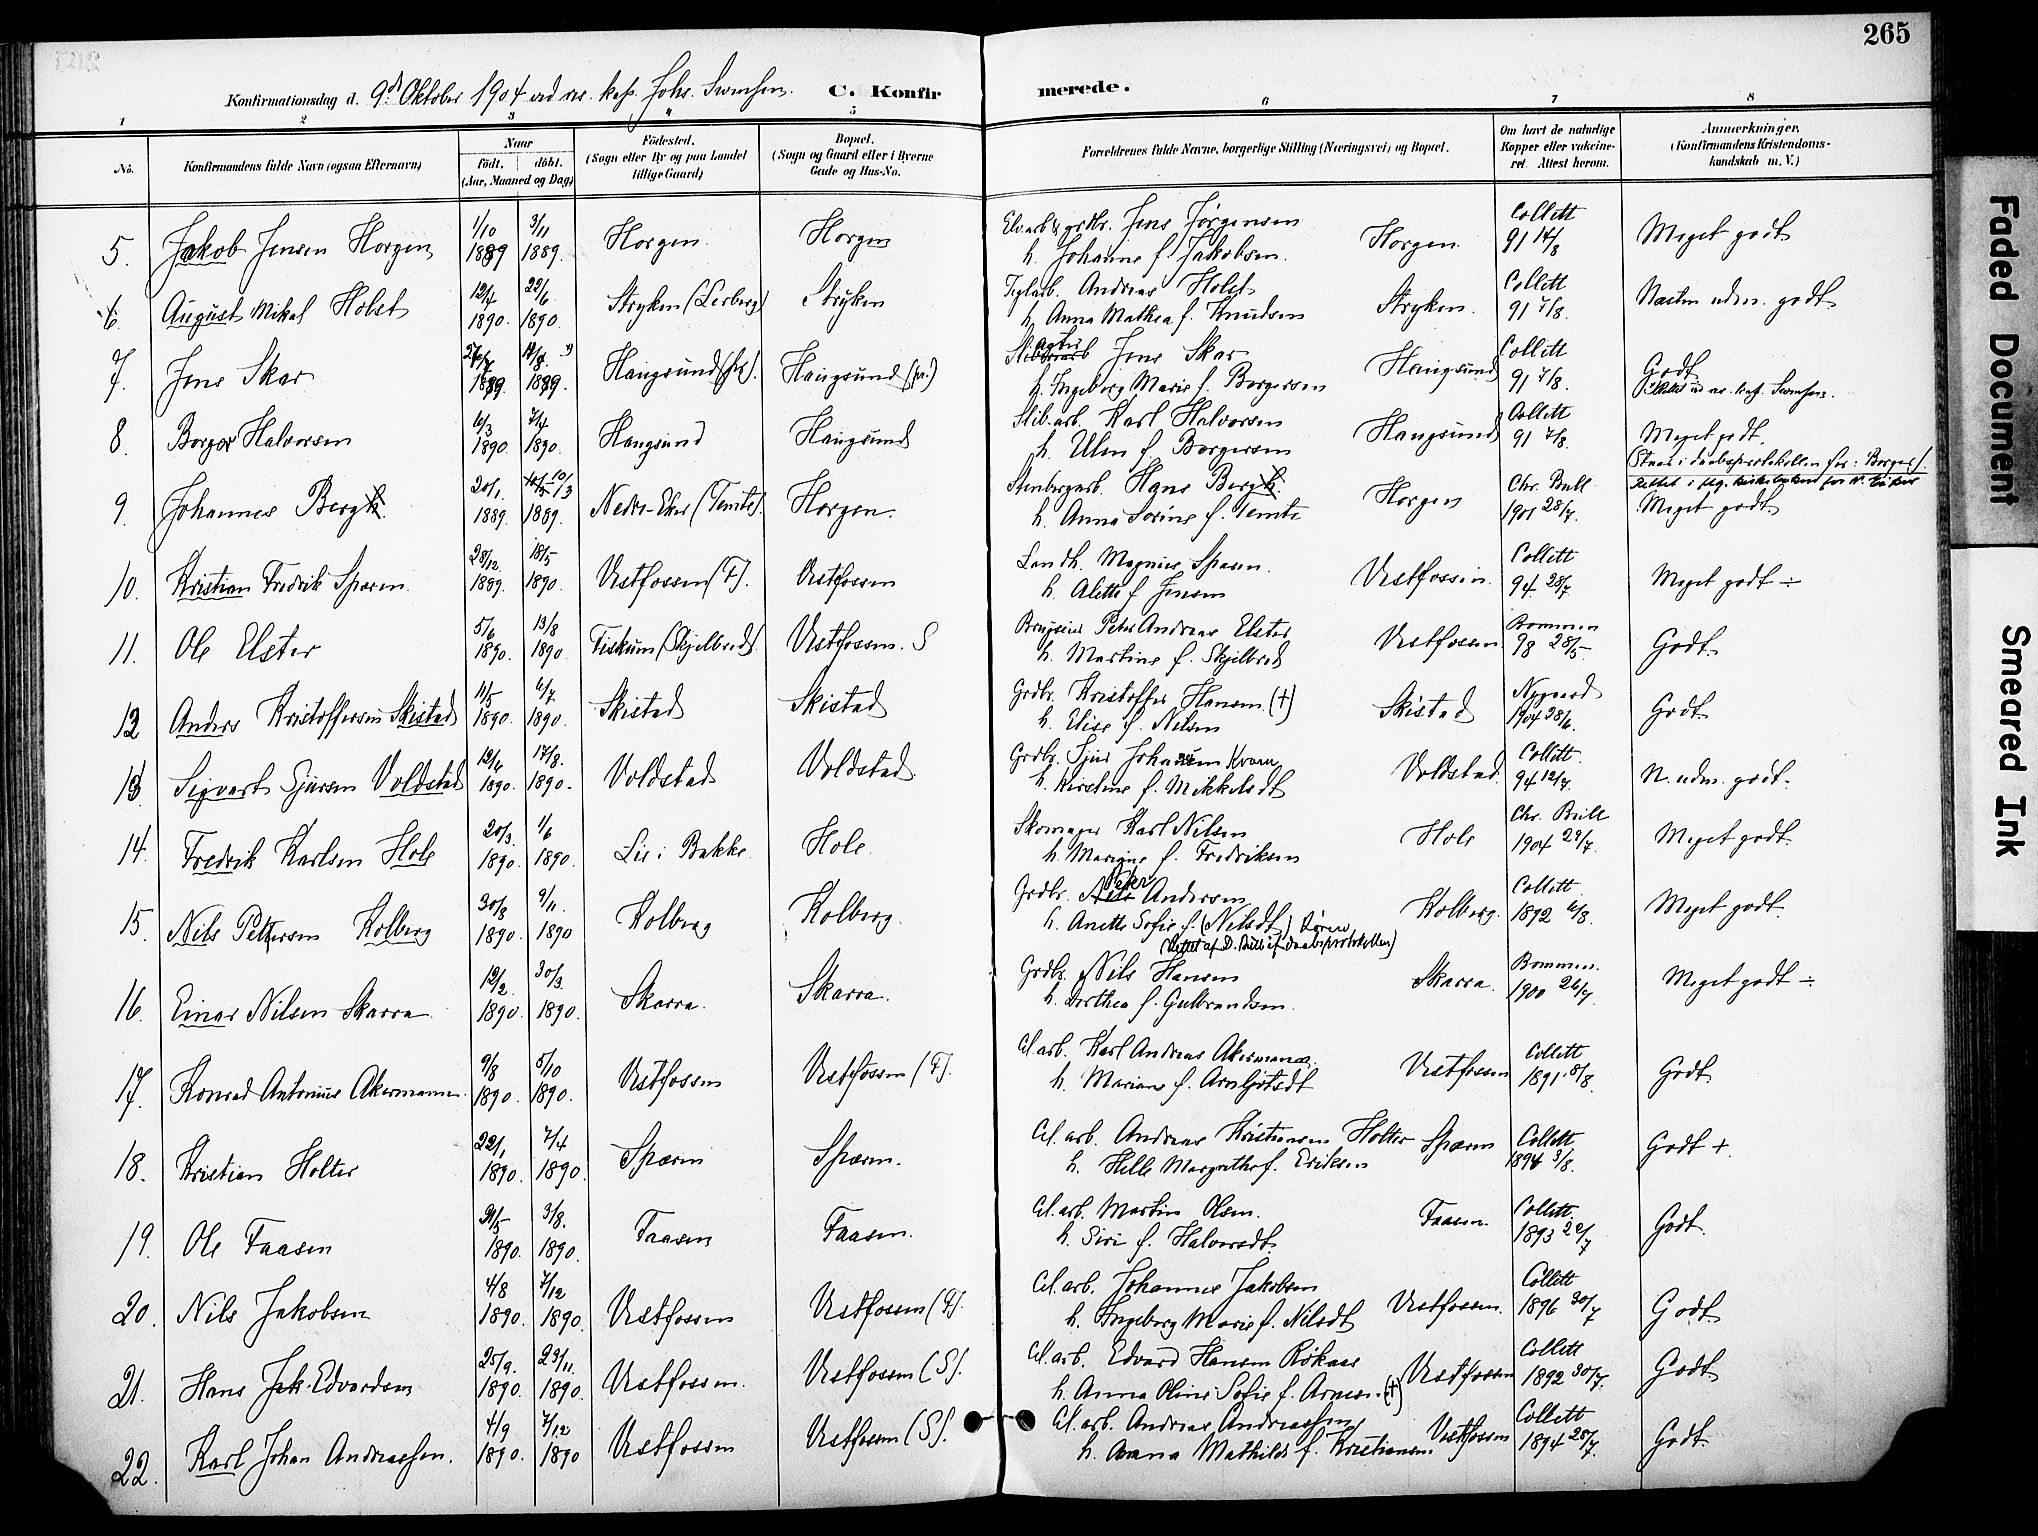 265
Konfirmationsdag d. 9de Oktober 1904 ved res. kap. Johs. Svendsen. C. Konfir merede.
1 2 3 4 5 6 7 8
No. Konfirmandens fulde Navn (ogsaa Efternavn) Naar født, døbt. (Aar, Maaned og Dag) Fødested. (Sogn eller By og paa Landet tillige Gaard) Bopæl. (Sogn og Gaard eller i Byerne Gade og Hus-No. Forældrenes fulde Navne, borgerlige Stilling (Næringsvei) og Bopæl. Om havt de naturlige Kopper eller vakcineret. Attest herom. Anmærkninger. (Konfirmandens Kristendomskundskab m. V.)
5. Jakob Jensen Horgen 1/10 1889 3/11 1889. Horgen. Horgen Elv.arb. & grdbr. Jens Jørgensen h. Johanne f. Jakobsen. Horgen. Collett 91 14/8 Meget godt
6. August Mikal Holst 12/4 1890. 22/6 1890. Stryken (Lerberg) Stryken Teglarb. Andreas Holst h. Anna Mathea f. Knudsen Stryken. Collett 91 7/8. Næsten udm. godt
7. Jens Skar 1889 1889. Haugsund Haugsund Jens Skar h. Ingeborg Marie f. Borgersen Haugsund Collett 91 7/8. Godt
8. Borger Halvorsen 6/3 1890. 7/4 1890. Haugsund Haugsund Slib.arb. Karl Halvorsen h. Ulen f. Borgersen Haugsund Collett 91 7/8. Meget godt. (Staar i daabsprotokollen for: Borger).
9. Johannes Berg 20/1 1889. 10/3 1889. Nedre-Eker (Temte). Horgen. Stenbergarb. Hans Berg h. Anna Sorine f. Temte Horgen Chr. Bull 1901 28/7. Meget godt
10. Kristian Fredrik Sparen 28/12. 1889. 18/5 1890. Vestfossen (F). Vestfossen Landh. Magnus Sparen. h. Alette f. Jensen Vestfossen. Collett 94 28/7 Meget godt ÷
11. Ole Elster 5/6 1890. 13/8 1890. Fiskum (Skjelbred). Vestfossen. S Peter Andreas Elster h. Martine f. Skjelbred Vestfossen. Bommen 98 28/5. Godt
12 Anders Kristoffersen Skistad 11/5 1890. 6/7 1890. Skistad Skistad Grdbr. Kristoffer Hansen (+) h. Elise f. Nilsen Skistad Nygaard 1904 28/6. Godt
13. Sigvart Sjursen Voldstad 12/6 1890. 17/8. 1890. Voldstad Voldstad Grdbr. Sjur Johansen Kvam h. Kirstine f. Mikkelsdt Voldstad. Collett. 94 12/7. N. udm. godt.
14. Fredrik Karlsen Hole 20/3. 1890. 1/6 1890. Lie i Bakke Hole. Skomager Karl Nilsen h. Marine f. Fredriksen Hole Chr. Bull 1904 29/7. Meget godt.
15. Nils Pettersen Kolberg 30/8 1890. 9/11. 1890 Kolberg Kolberg. Grdbr. Peter Andersen h. Anette Sofie f. (Nilsdt) Kolberg. Collett 1892 6/8. Meget godt.
16. Einar Nilsen Skarra 12/2. 1890. 30/3. 1890. Skarra. Skarra. Grdbr. Nils Hansen h. Dorthea f. Gulbrandsen. Skarra. Bommen. 1900 26/7. Meget godt ÷
17. Konrad Antonius Akermann 9/8 1890. 5/10 1890. Vestfossen Vestfossen (F). Cel.arb. Karl Andreas Akermann. h. Mariane f. Arnljotsdt Vestfossen Collett 1891. 8/8. Godt
18. Kristian Holter 22/1 1890. 7/4 1890. Sparen Sparen. Cel. arb. Andreas Kristiansen Holter h. Helle Margrethe f. Eriksen Sparen Collett 1894 3/8. Godt +.
19. Ole Faasen 31/5 1890. 3/8. 1890. Faasen Faasen. Cel. arb. Martin Olsen. h. Siri f. Halvorsdt. Faasen Collett. 1893 29/7 Godt.
20. Nils Jakobsen 4/8 1890. 7/12 1890. Vestfossen Vestfossen (F). Cel. arb. Johannes Jakobsen h. Ingeborg Marie f. Nilsdt Vestfossen. Collett 1896 30/7 Godt.
21. Hans Jak. Edvardsen 25/9. 1890. 23/11. 1890. Vestfossen. Vestfossen (S). Cel. arb. Edvard Hansen Røkaas h. Anna Oline Sofie f. Arnesen. (+) Vestfossen Collett 1892 30/7. Godt
22. Karl Johan Andreassen. 4/9 1890. 7/12 1890 Vestfossen Vestfossen (S). Cel. arb. Andreas Andreassen h. Anna Mathilde f. Kristiansen Vestfossen Collett 1894 28/7. Godt
Faded Document
Smeared Ink